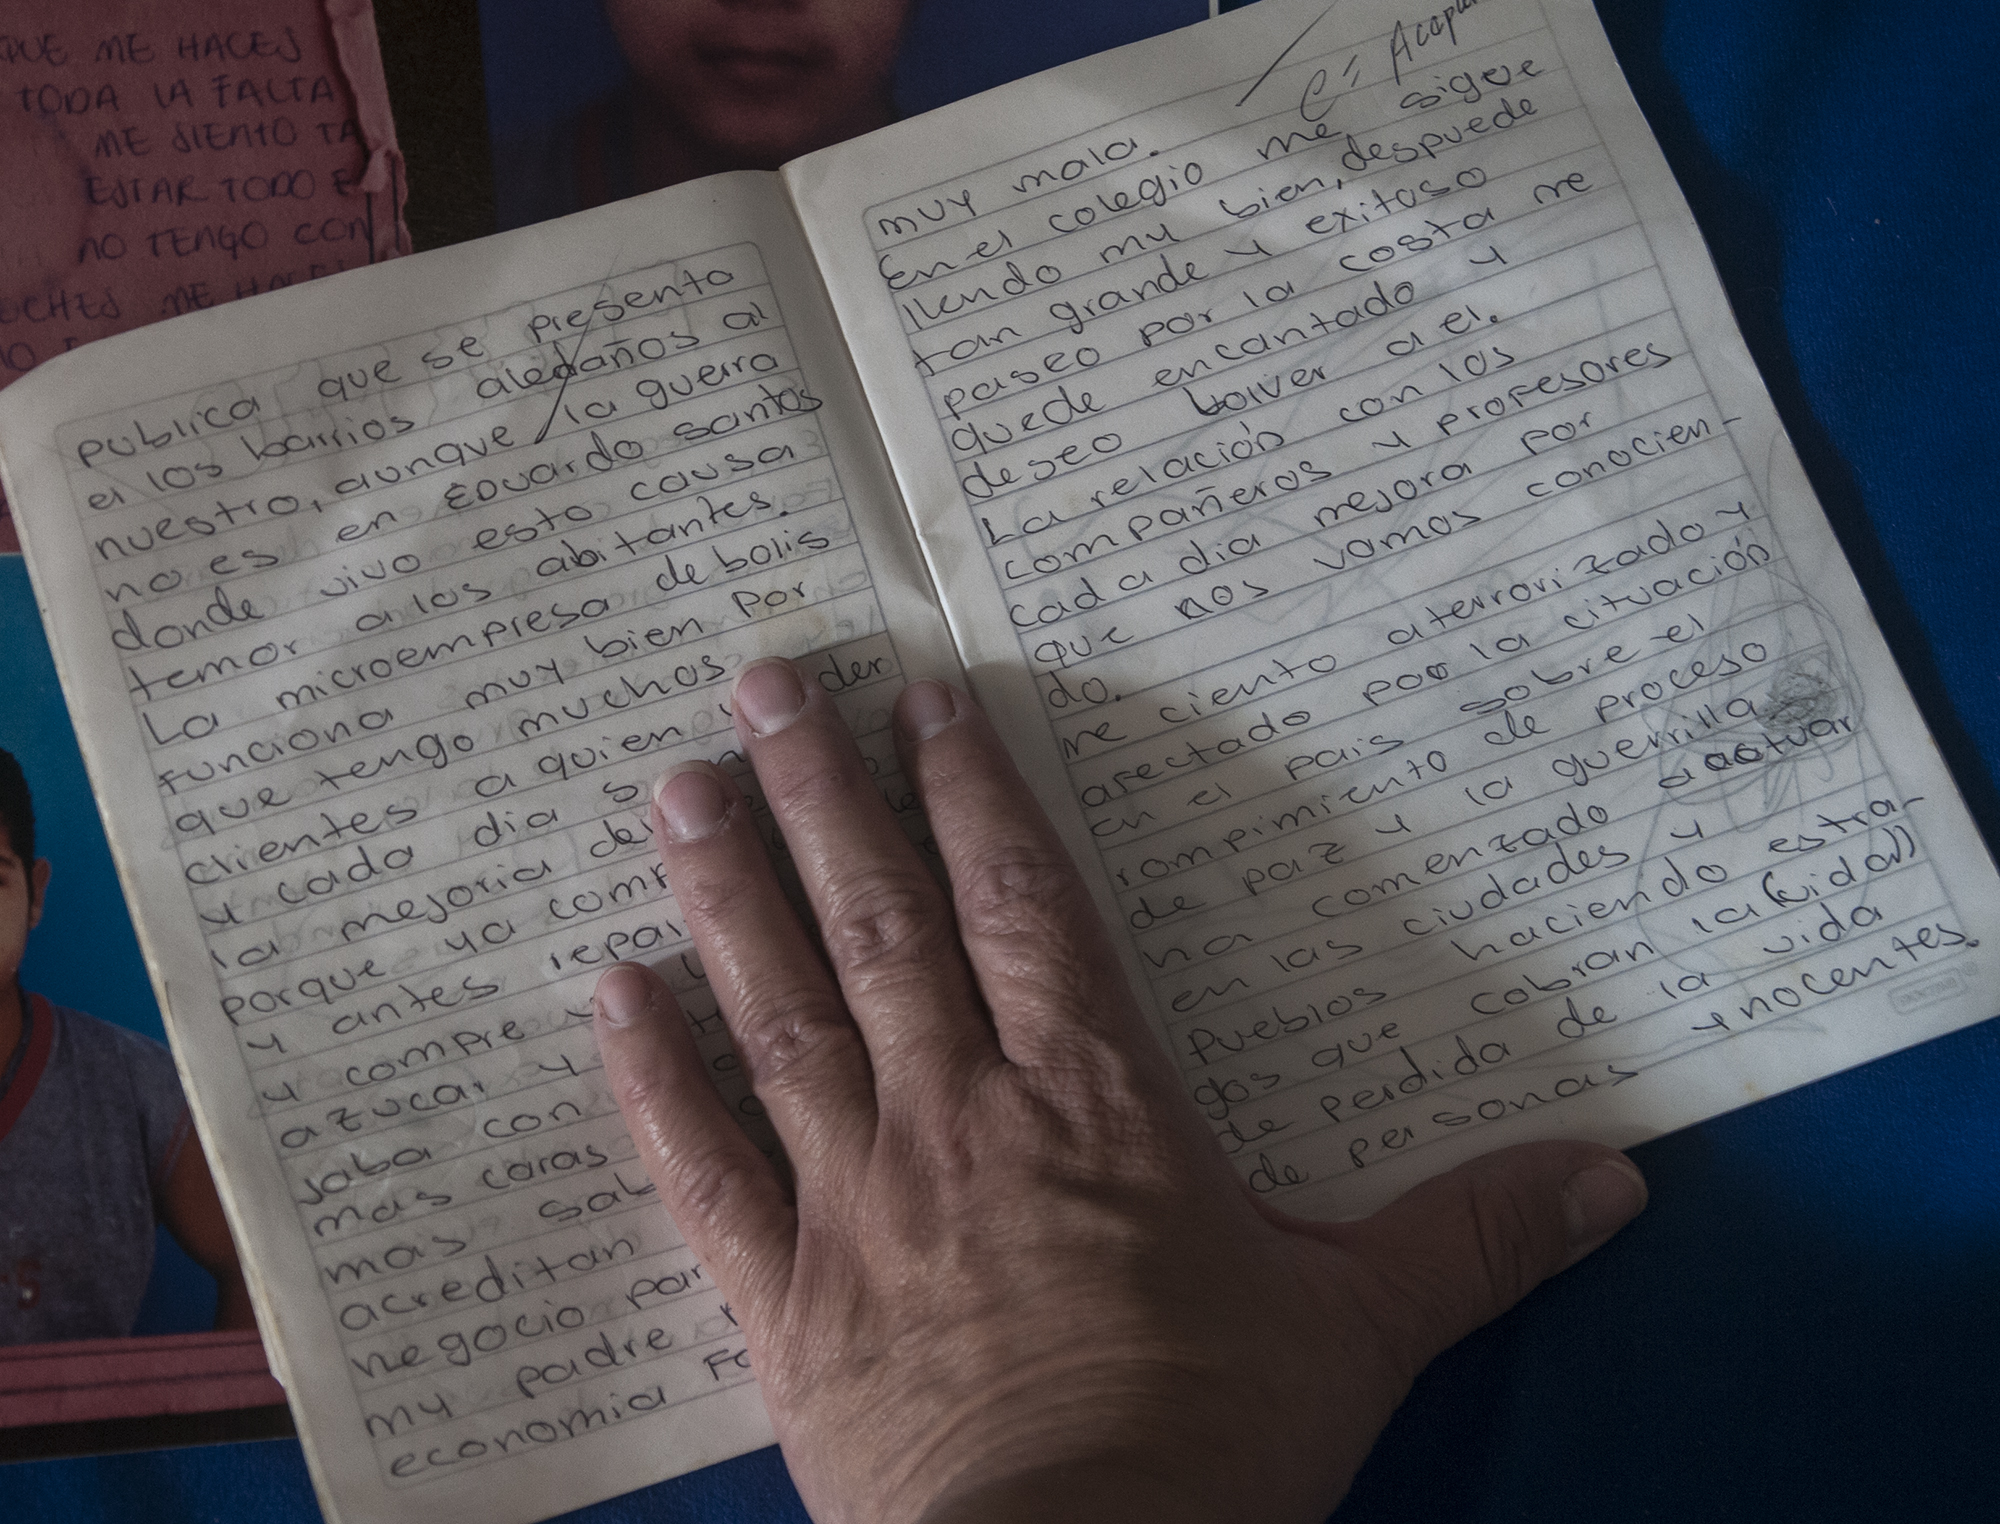 QUE ME HACES
TODA LA FALTA
ME SIENTO TA
ESTAR TODO E
NO TENGO CON
ECHES ME HACE
publica que se presento
el los barrios aledaños al
nuestro, aunque la guerra
no es en Eduardo santos
donde vivo esto causa
temor a los abitantes.
La microempresa de bolis
funciona muy bien por
que tengo muchos
clientes a quien der
y cada dia s
la mejoria del
porque ya comp
y antes
y compre
azucar y
jaba con
mas caras
mas sab
acreditan
negocio par
my padre
economia Fa
muy mala.
En el colegio me sigue
llendo muy bien, despuede
tan grande y exitoso
paseo por la costa me
quede encantado y
deseo bolver a el.
La relación con los
compañeros y profesores
cada dia mejora por
que nos vamos conocien-
do.
me ciento aterrorizado y
afectado poo la cituación
en el pais sobre el
rompimiento de proceso
de paz y la guerrilla
ha comenzado a actuar
en las ciudades y
Pueblos haciendo estra-
gos que cobran la (vida))
de perdida de la vida
de personas ynocentes.